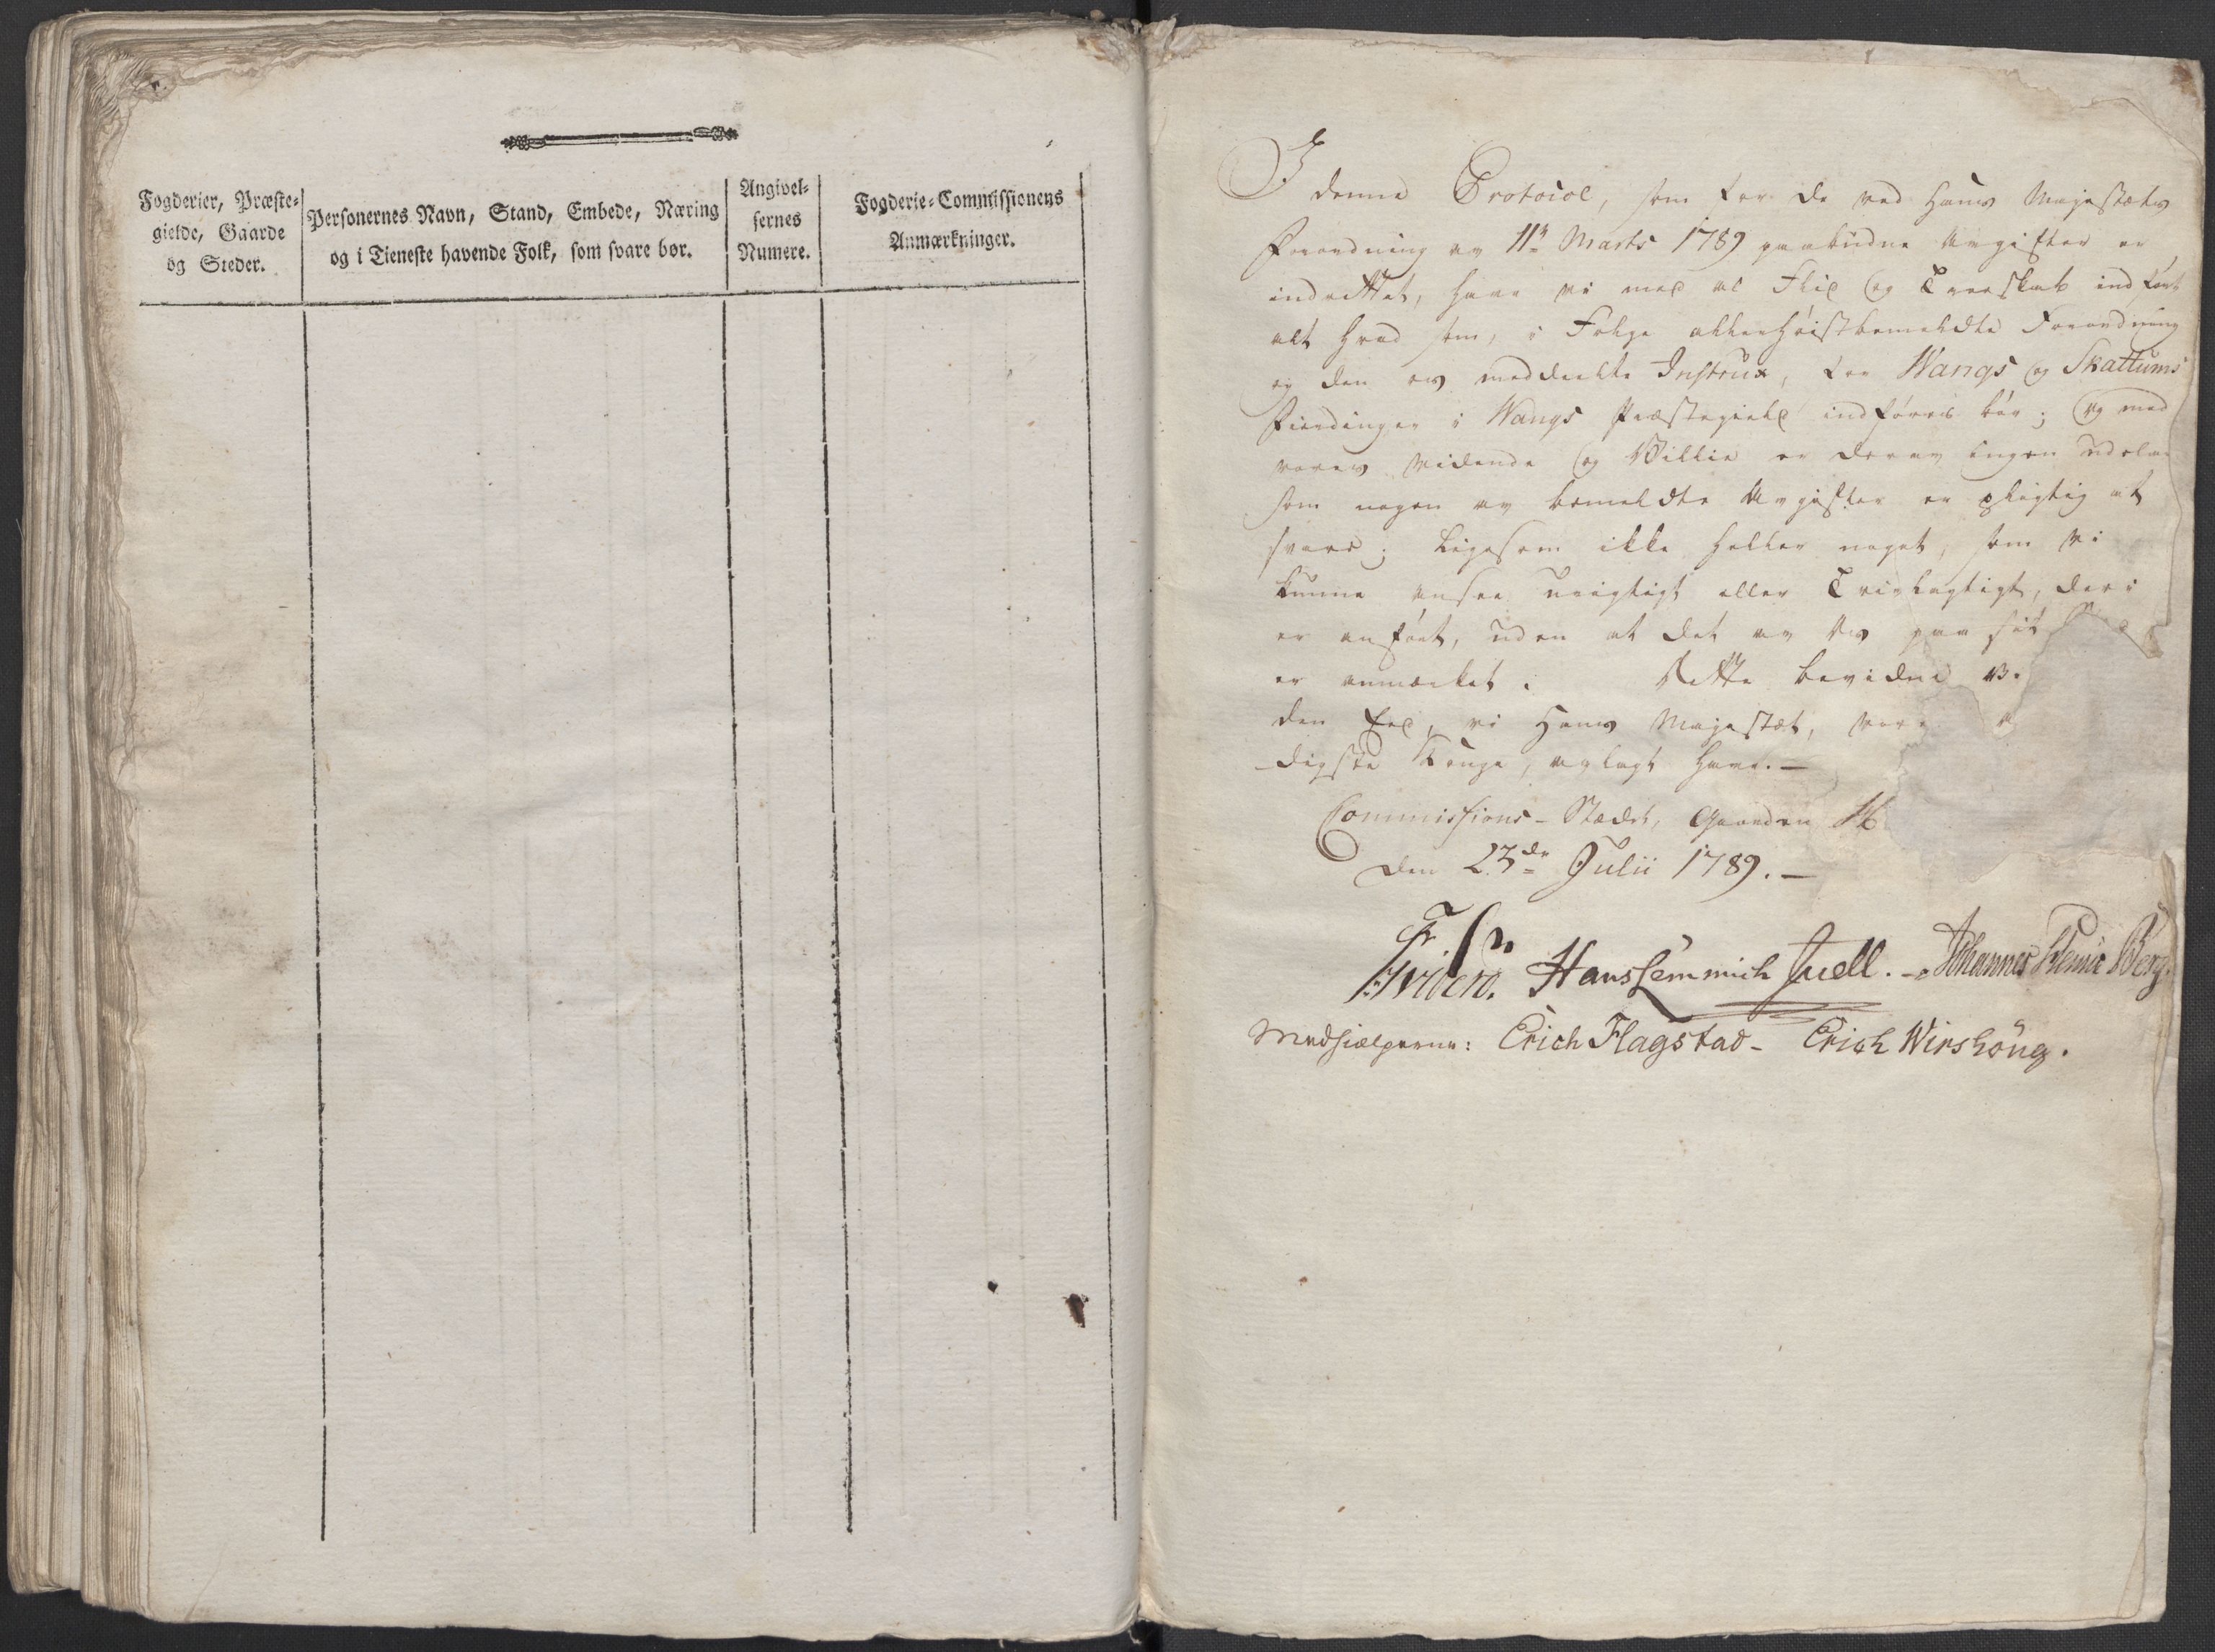 Fogderier, Præste-
gielde, Gaarde
og Steder.
Personernes Navn, Stand, Embede, Næring
og i Tieneste havende Folk, som svare bør.
Angivel-
sernes
Numere.
Fogderie-Commissionens
Anmærkninger.
I denne Protocol, som for de ved Hans Majestæts
Forordning av 11te Marts 1789 paabudne Avgifter er
indrettet, have vi med al Flid og Troeskab indført
alt hvad som, i Følge allerhøistbemeldte Forordning
og den os meddeelte Instrux, for Wangs og Skattums
Fierdinger i Wangs Præstegield indføres bør; og med
vores Vidende og Villie er derav ingen udela
som nogen av bemeldte Avgifter er pligtig at
svare; ligesom ikke heller noget, som vi
kunne ansee urigtigt eller Tvivlagtigt, deri
er anført, uden at det av os paa sit
er anmærket. Dette bevidne vi
den Eed, vi Hans Majestæt, vor
digste Konge, avlagt have. —
Commissions-Stædet, Gaarden
den 23de Julii 1789. —
Hans Lemmich Juell. - Johannes Berg.
Medhielperne: Erich Flagstad - Erich Wirshöug.